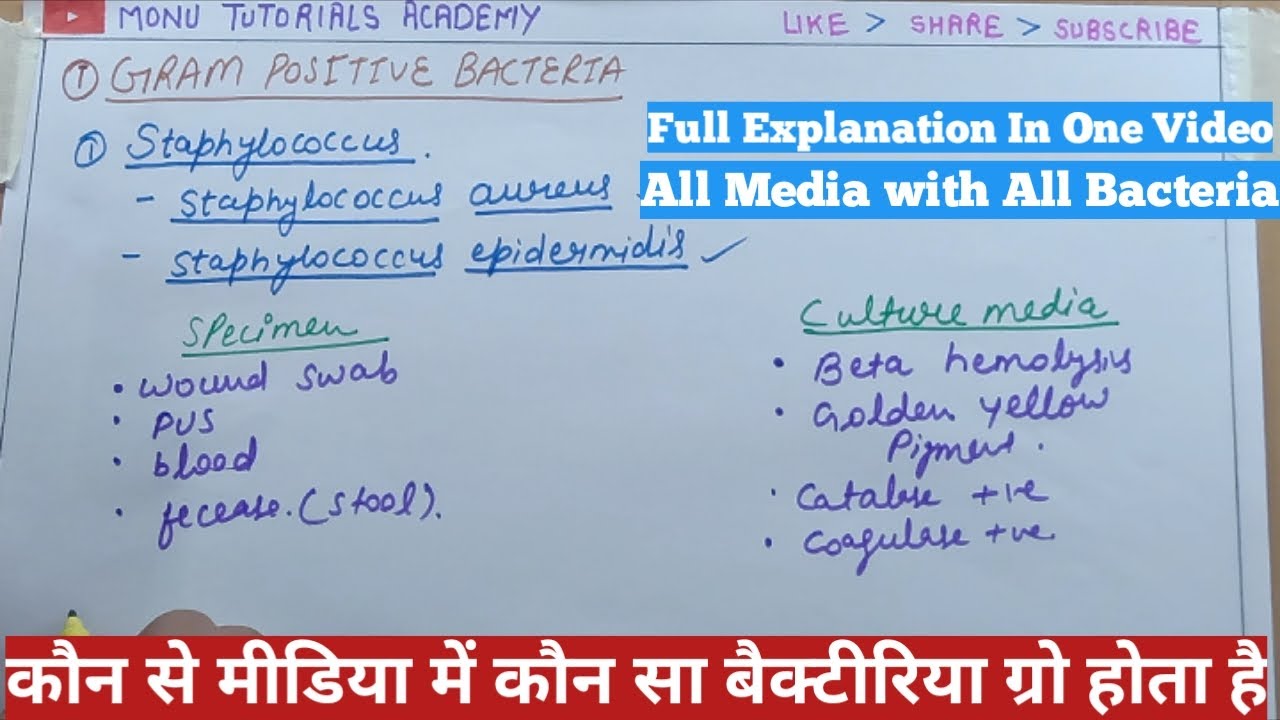 MONU TUTORIALS ACADEMY
LIKE > SHARE > SUBSCRIBE
① GRAM POSITIVE BACTERIA
Full Explanation In One Video
① Staphylococcus.
All Media with All Bacteria
- Staphylococcus aureus
- Staphylococcus epidermidis ✓
Specimen
• wound swab
• pus
• blood
• fecease. (stool).
Culture media
• Beta hemolysis
• Golden yellow
Pigment.
• Catalase +ve
• Coagulase +ve
कौन से मीडिया में कौन सा बैक्टीरिया ग्रो होता है